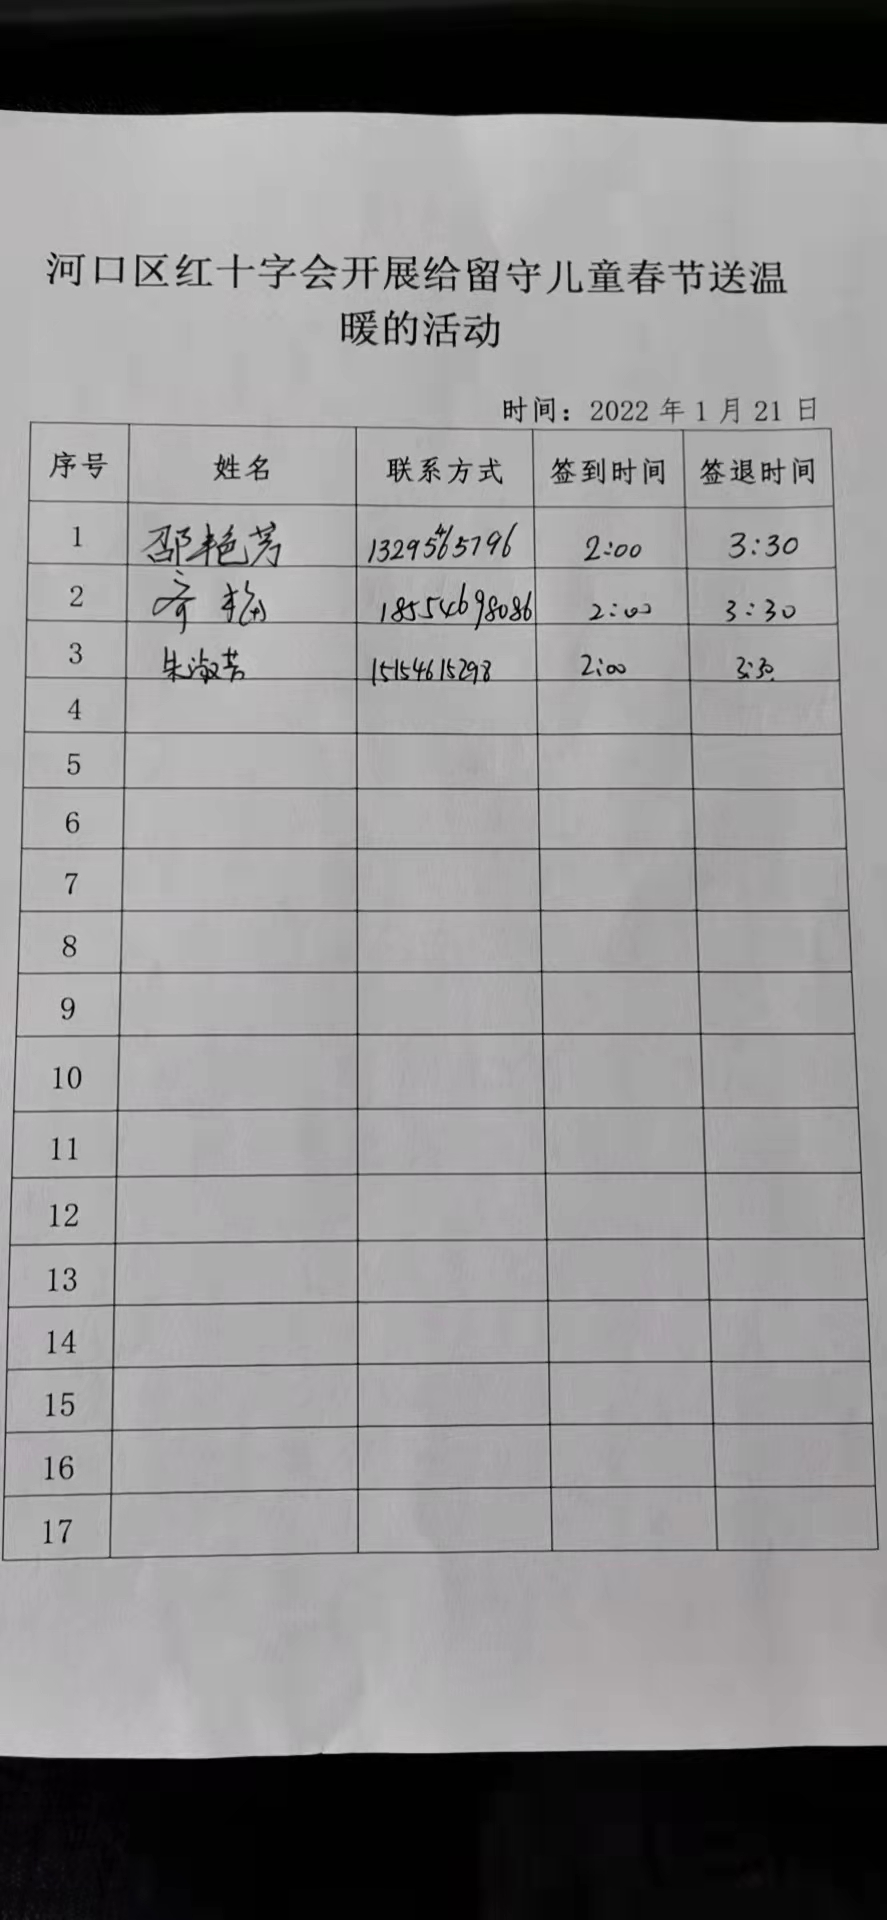 河口区红十字会开展给留守儿童春节送温
暖的活动
时间：2022 年 1 月 21 日
序号 姓名 联系方式 签到时间 签退时间
1 邵艳芳 2:00 3:30
2 齐梅 18554698086 2:00 3:30
3 朱淑芳 15154615298 2:00 3:30
4
5
6
7
8
9
10
11
12
13
14
15
16
17